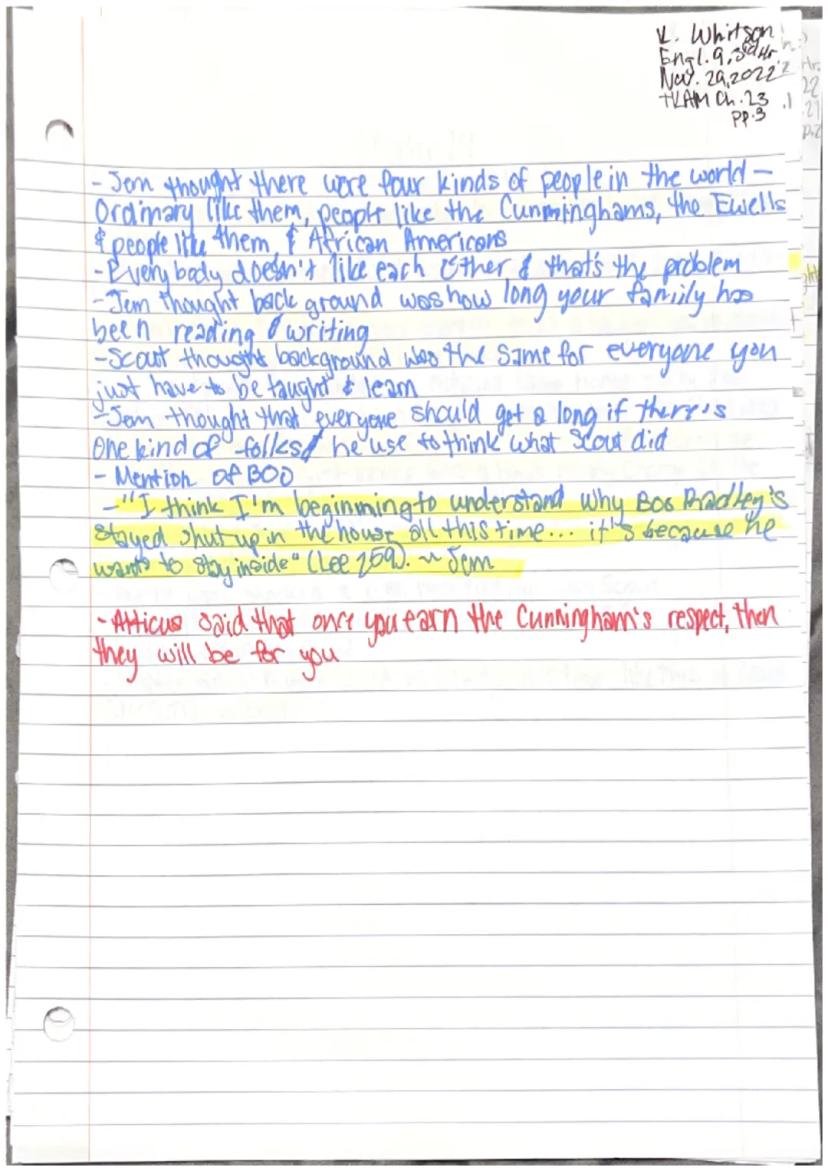 K. Whitson
Engl. 9, 3rd Hr
Nov. 29, 2022
TKAM Ch. 23
pp. 3
- Jem thought there were four kinds of people in the world -
Ordinary like them, people like the Cunninghams, the Ewells
& people like them, & African Americans
- Everybody doesn't like each other & that's the problem
- Jem thought back ground was how long your family has
been reading & writing
- Scout thought background was the same for everyone you
just have to be taught & learn
- Jem thought that everyone should get a long if there's
one kind of folks & he use to think what Scout did
- Mention of BOO
- "I think I'm beginning to understand why Boo Radley's
stayed shut up in the house all this time... it's because he
wants to stay inside" (Lee 259). ~ Jem
- Atticus said that once you earn the Cunningham's respect, then
they will be for you